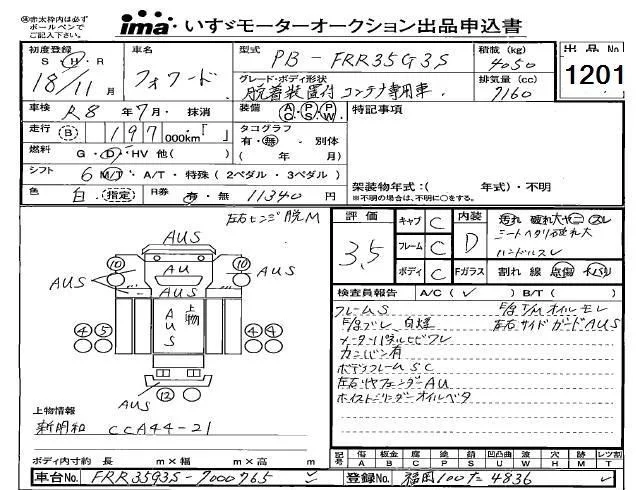 ㊟赤太枠内は必ず
ボールペンで
ご記入下さい。
ima いすゞモーターオークション出品申込書
初度登録 S・H・R 18/11月
車名 フォワード
型式 PB-FRR35G3S
積載(kg) 4050
出品No 1201
グレード・ボディ形状 脱着装置付コンテナ専用車
排気量(cc) 7160
車検 R8年7月・抹消
装備 AC・PS・PW
特記事項
走行 (B) 197,000km・「 」
タコグラフ 有・無・別体
( 年 月)
燃料 G・D・HV 他( )
シフト 6 M/T・A/T・特殊(2ペダル・3ペダル)
架装物年式:( 年式)・不明
※不明の場合は、不明に○をする。
色 白(指定) R券 有・無 11340円
左右ヒンジ脱M
評価 3.5
キャブ C
フレーム C
ボディ C
内装 D
Fガラス
汚れ 破れ大 ヤニ スレ
シートヘタリ破れ大
ハンドルスレ
割れ 線 点傷
AUS
⑩ AU ⑩
AUS AUS AUS
AUS 上物
④ ⑤ ④ ④
AUS ⑫
検査員報告 A/C(✓) B/T( )
フレームS
白煙
E/g T/M オイルモレ
左右サイドガードAUS
メーターパネルヒビワレ
カンバン有
ボデーフレームSC
左右リヤフェンダーAU
ホイストシリンダーオイルベタ
上物情報
新明和 CCA44-21
ボディ内寸約 長 m×幅 m×高 m
記号 傷A 板金B 腐C 塗P 錆S 凹凸曲U 波W 穴H 欠K 跡M レツ割T
車台No. FRR35G3S-7000765
登録No. 福岡100た4836